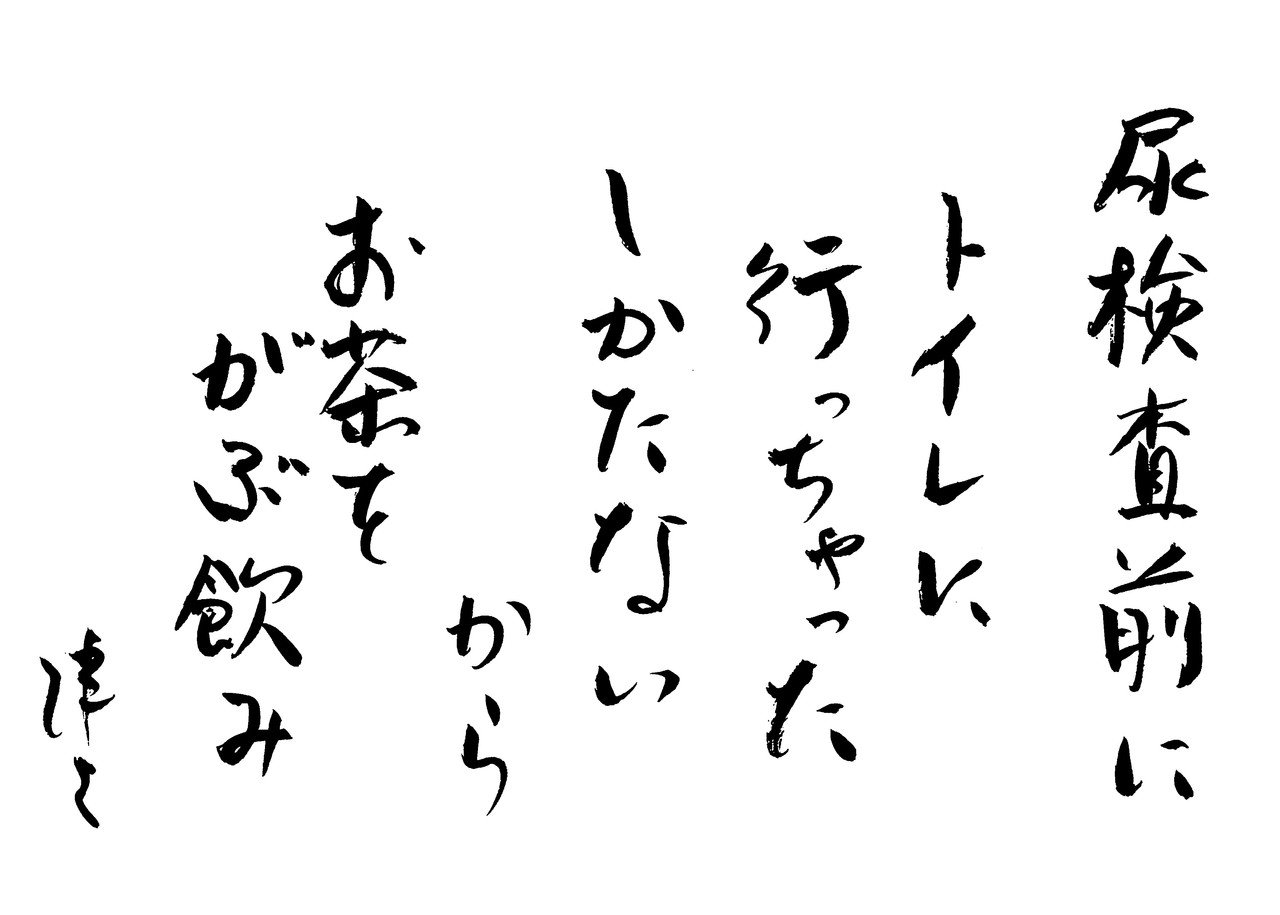 尿検査前に
トイレに
行っちゃった
しかたない
から
お茶を
がぶ飲み
津々